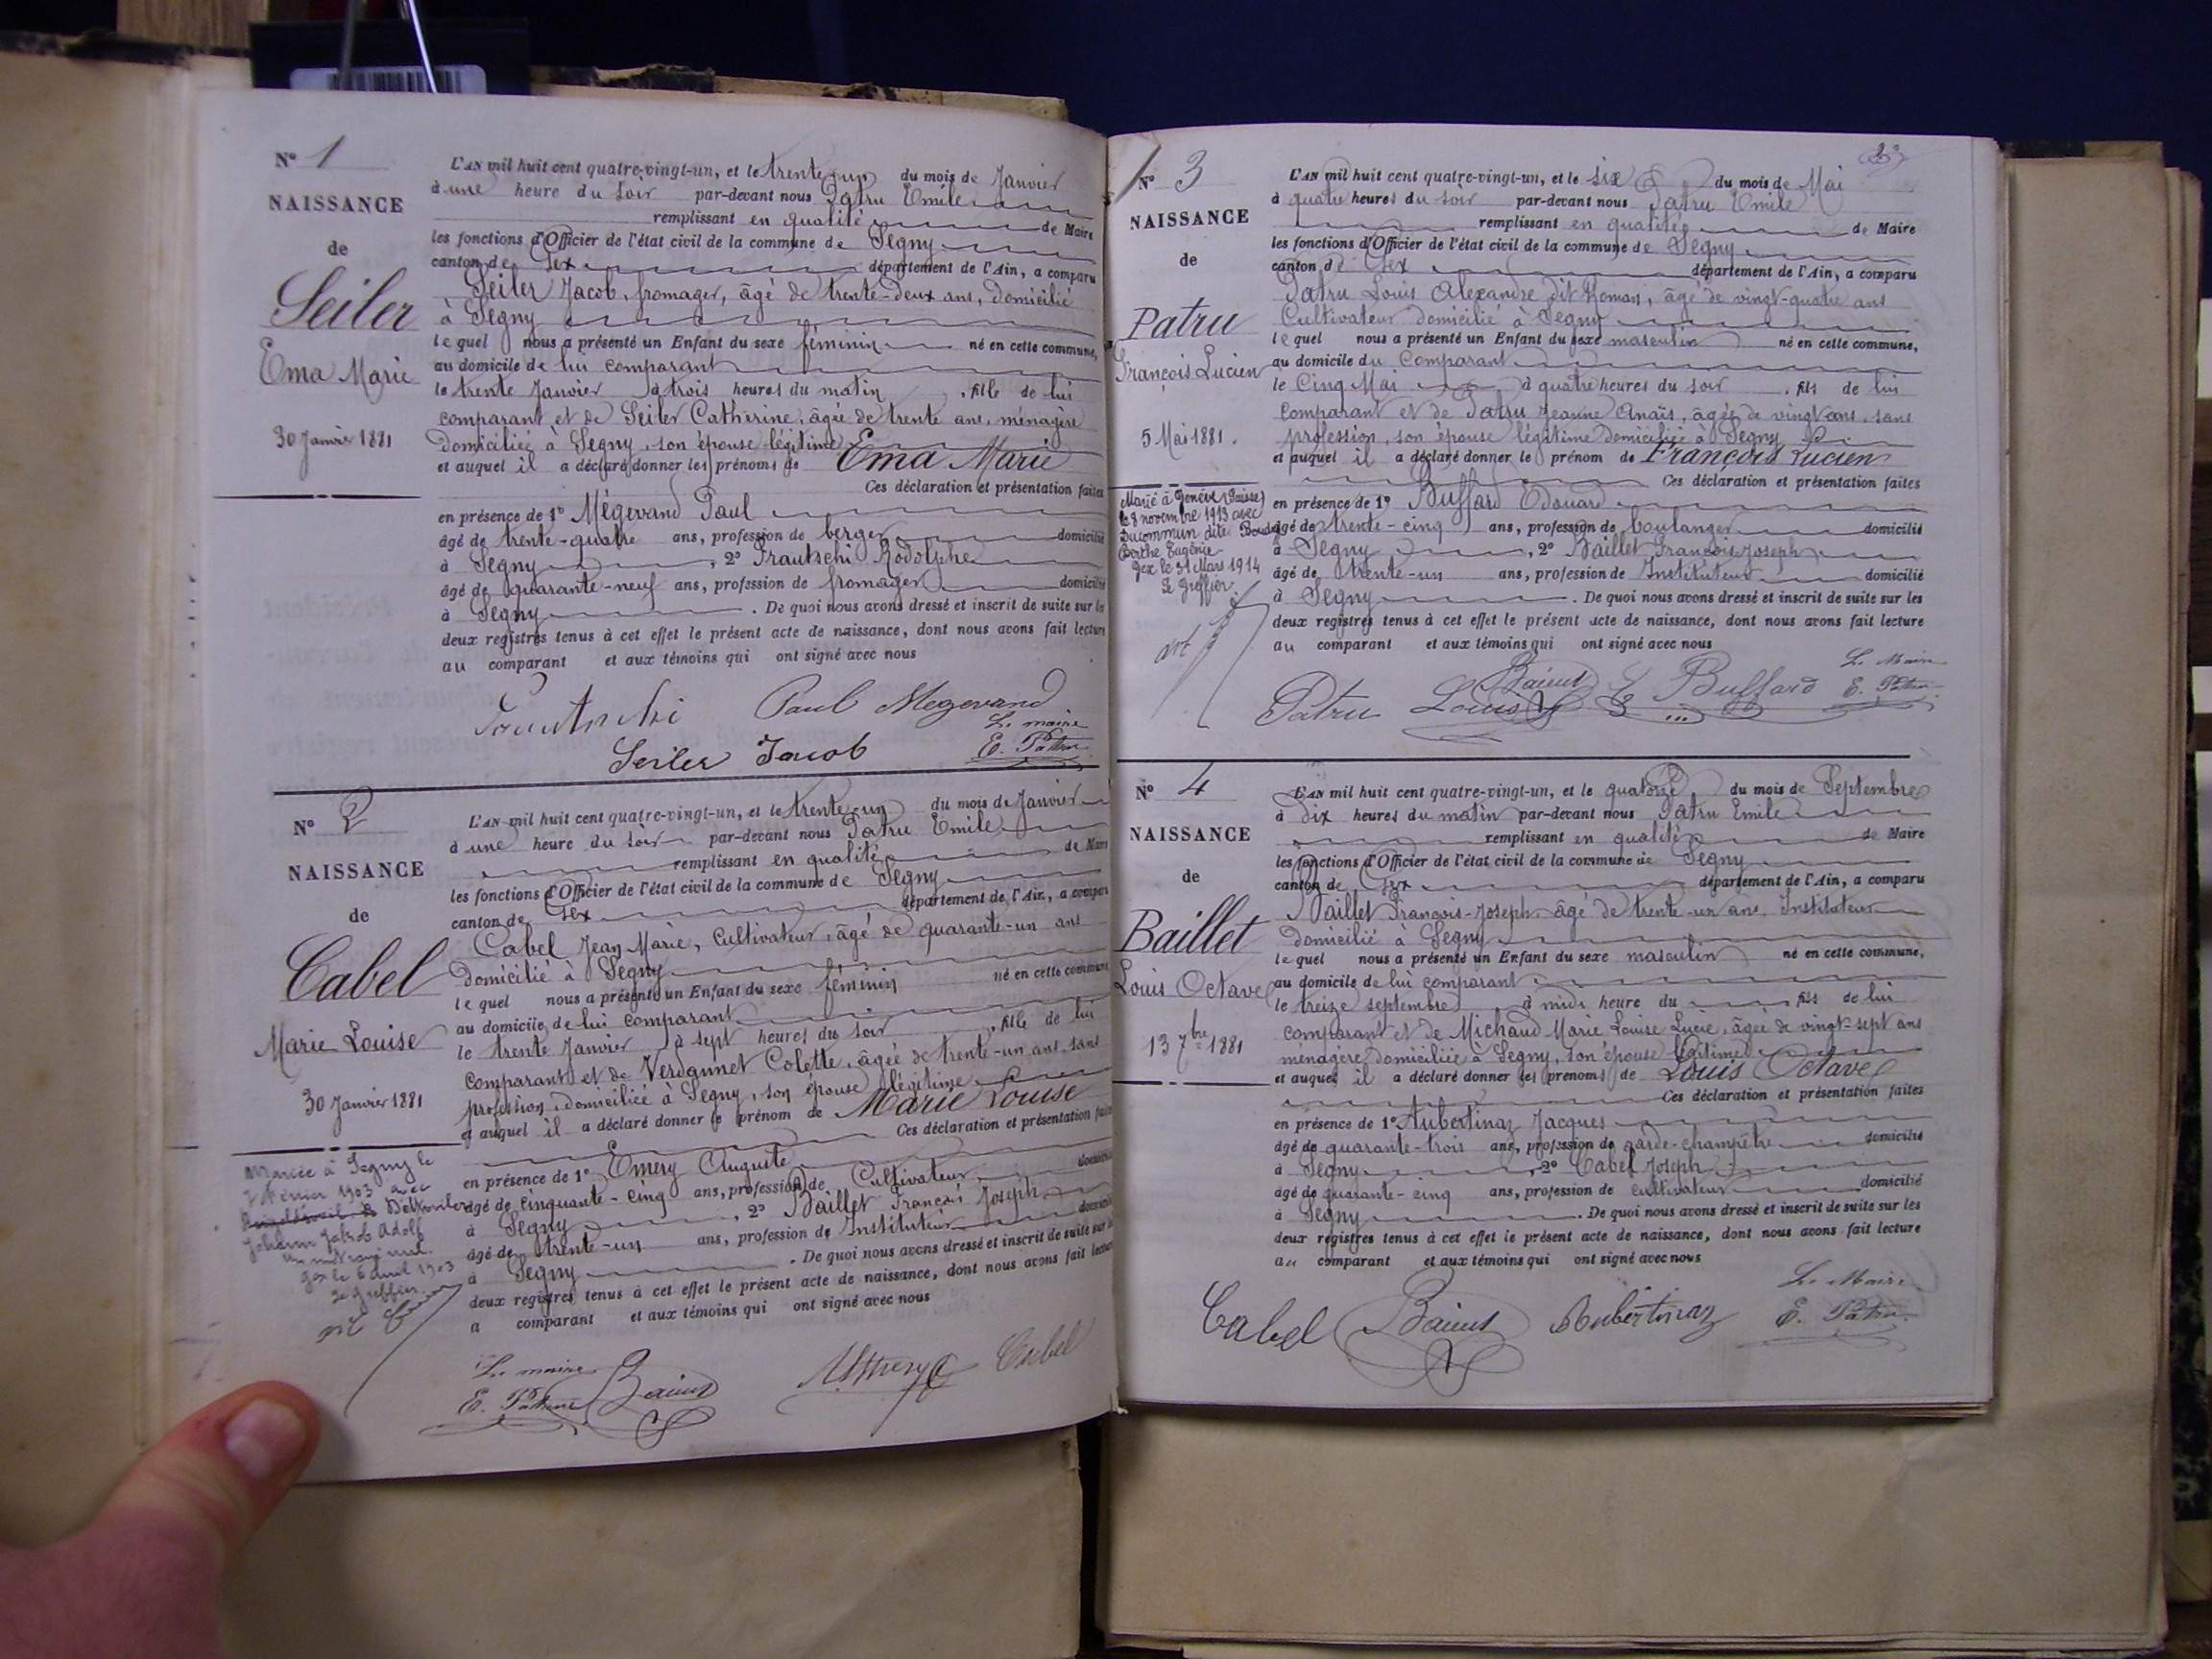 N° 1
NAISSANCE
de
Seiler
Ema Marie
30 Janvier 1881
L'AN mil huit cent quatre-vingt-un, et le trente-un du mois de Janvier
à une heure du soir par-devant nous Patru Emile
remplissant en qualité de Maire
les fonctions d'Officier de l'état civil de la commune de Segny
canton de Gex département de l'Ain, a comparu
Seiler Jacob, fromager, âgé de trente-deux ans, domicilié
à Segny
lequel nous a présenté un Enfant du sexe féminin né en cette commune,
au domicile de lui comparant
le trente Janvier à trois heures du matin, fille de lui
comparant et de Seiler Catherine, âgée de trente ans, ménagère
domiciliée à Segny, son épouse légitime
et auquel il a déclaré donner les prénoms de Ema Marie
Ces déclaration et présentation faites
en présence de 1° Mégevand Paul
âgé de trente-quatre ans, profession de berger domicilié
à Segny, 2° Frautschi Rodolphe
âgé de quarante-neuf ans, profession de fromager domicilié
à Segny. De quoi nous avons dressé et inscrit de suite sur les
deux registres tenus à cet effet le présent acte de naissance, dont nous avons fait lecture
au comparant et aux témoins qui ont signé avec nous
Frautschi Paul Megevand
Le maire
Seiler Jacob E. Patru
N° 2
NAISSANCE
de
Cabel
Marie Louise
30 Janvier 1881
Mariée à Segny le
Février 1903 avec
Johann Jakob Adolf
Gex le 6 avril 1903
Le Greffier
L'AN mil huit cent quatre-vingt-un, et le trente-un du mois de Janvier
à une heure du soir par-devant nous Patru Emile
remplissant en qualité de Maire
les fonctions d'Officier de l'état civil de la commune de Segny
canton de Gex département de l'Ain, a comparu
Cabel Jean Marie, Cultivateur, âgé de quarante-un ans
domicilié à Segny
lequel nous a présenté un Enfant du sexe féminin né en cette commune
au domicile de lui comparant
le trente Janvier à sept heures du soir, fille de lui
comparant et de Verdonnet Colette, âgée de trente-un ans, sans
profession, domiciliée à Segny, son épouse légitime
et auquel il a déclaré donner le prénom de Marie Louise
Ces déclaration et présentation faites
en présence de 1° Emery Auguste
âgé de cinquante-cinq ans, profession de Cultivateur domicilié
à Segny, 2° Baillet François Joseph
âgé de trente-un ans, profession de Instituteur domicilié
à Segny. De quoi nous avons dressé et inscrit de suite sur les
deux registres tenus à cet effet le présent acte de naissance, dont nous avons fait lecture
a comparant et aux témoins qui ont signé avec nous
Le maire
E. Patru Baillet Cabel
N° 3
NAISSANCE
de
Patru
François Lucien
5 Mai 1881.
Marié à Genève (Suisse)
le 8 novembre 1913 avec
Ducommun dite Boudry
Berthe Eugénie
Gex le 31 Mars 1914
Le Greffier
L'AN mil huit cent quatre-vingt-un, et le six du mois de Mai
à quatre heures du soir par-devant nous Patru Emile
remplissant en qualité de Maire
les fonctions d'Officier de l'état civil de la commune de Segny
canton de Gex département de l'Ain, a comparu
Patru Louis Alexandre dit Roman, âgé de vingt-quatre ans
Cultivateur domicilié à Segny
lequel nous a présenté un Enfant du sexe masculin né en cette commune,
au domicile du Comparant
le Cinq Mai à quatre heures du soir, fils de lui
Comparant et de Patru Jeanne Anaïs, âgée de vingt ans, sans
profession, son épouse légitime domiciliée à Segny
et auquel il a déclaré donner le prénom de François Lucien
Ces déclaration et présentation faites
en présence de 1° Buffard Edouard
âgé de trente-cinq ans, profession de boulanger domicilié
à Segny, 2° Baillet François Joseph
âgé de trente-un ans, profession de Instituteur domicilié
à Segny. De quoi nous avons dressé et inscrit de suite sur les
deux registres tenus à cet effet le présent acte de naissance, dont nous avons fait lecture
au comparant et aux témoins qui ont signé avec nous
Patru Louis Baillet E Buffard Le Maire
E. Patru
N° 4
NAISSANCE
de
Baillet
Louis Octave
13 7bre 1881
L'AN mil huit cent quatre-vingt-un, et le quatorze du mois de Septembre
à dix heures du matin par-devant nous Patru Emile
remplissant en qualité de Maire
les fonctions d'Officier de l'état civil de la commune de Segny
canton de Gex département de l'Ain, a comparu
Baillet François-Joseph âgé de trente-un ans, Instituteur
domicilié à Segny
lequel nous a présenté un Enfant du sexe masculin né en cette commune,
au domicile de lui comparant
le treize septembre à midi heure du fils de lui
comparant et de Michaud Marie Louise Lucie, âgée de vingt-sept ans
ménagère domiciliée à Segny, son épouse légitime
et auquel il a déclaré donner les prénoms de Louis Octave
Ces déclaration et présentation faites
en présence de 1° Aubertinaz Jacques
âgé de quarante-trois ans, profession de garde-champêtre domicilié
à Segny, 2° Cabel Joseph
âgé de quarante-cinq ans, profession de cultivateur domicilié
à Segny. De quoi nous avons dressé et inscrit de suite sur les
deux registres tenus à cet effet le présent acte de naissance, dont nous avons fait lecture
au comparant et aux témoins qui ont signé avec nous
Cabel Baillet Aubertinaz Le Maire
E. Patru